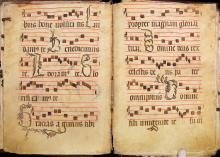 bus bone volunta tis Lau
damus te Benedicimus
te Adoramus te Glo
rificamus te
Gracias agimus tibi
propter magnam gloriam
tuam Domine deus rex
celestis deus pa ter
omnipotens Domine
fili unigenite ie su